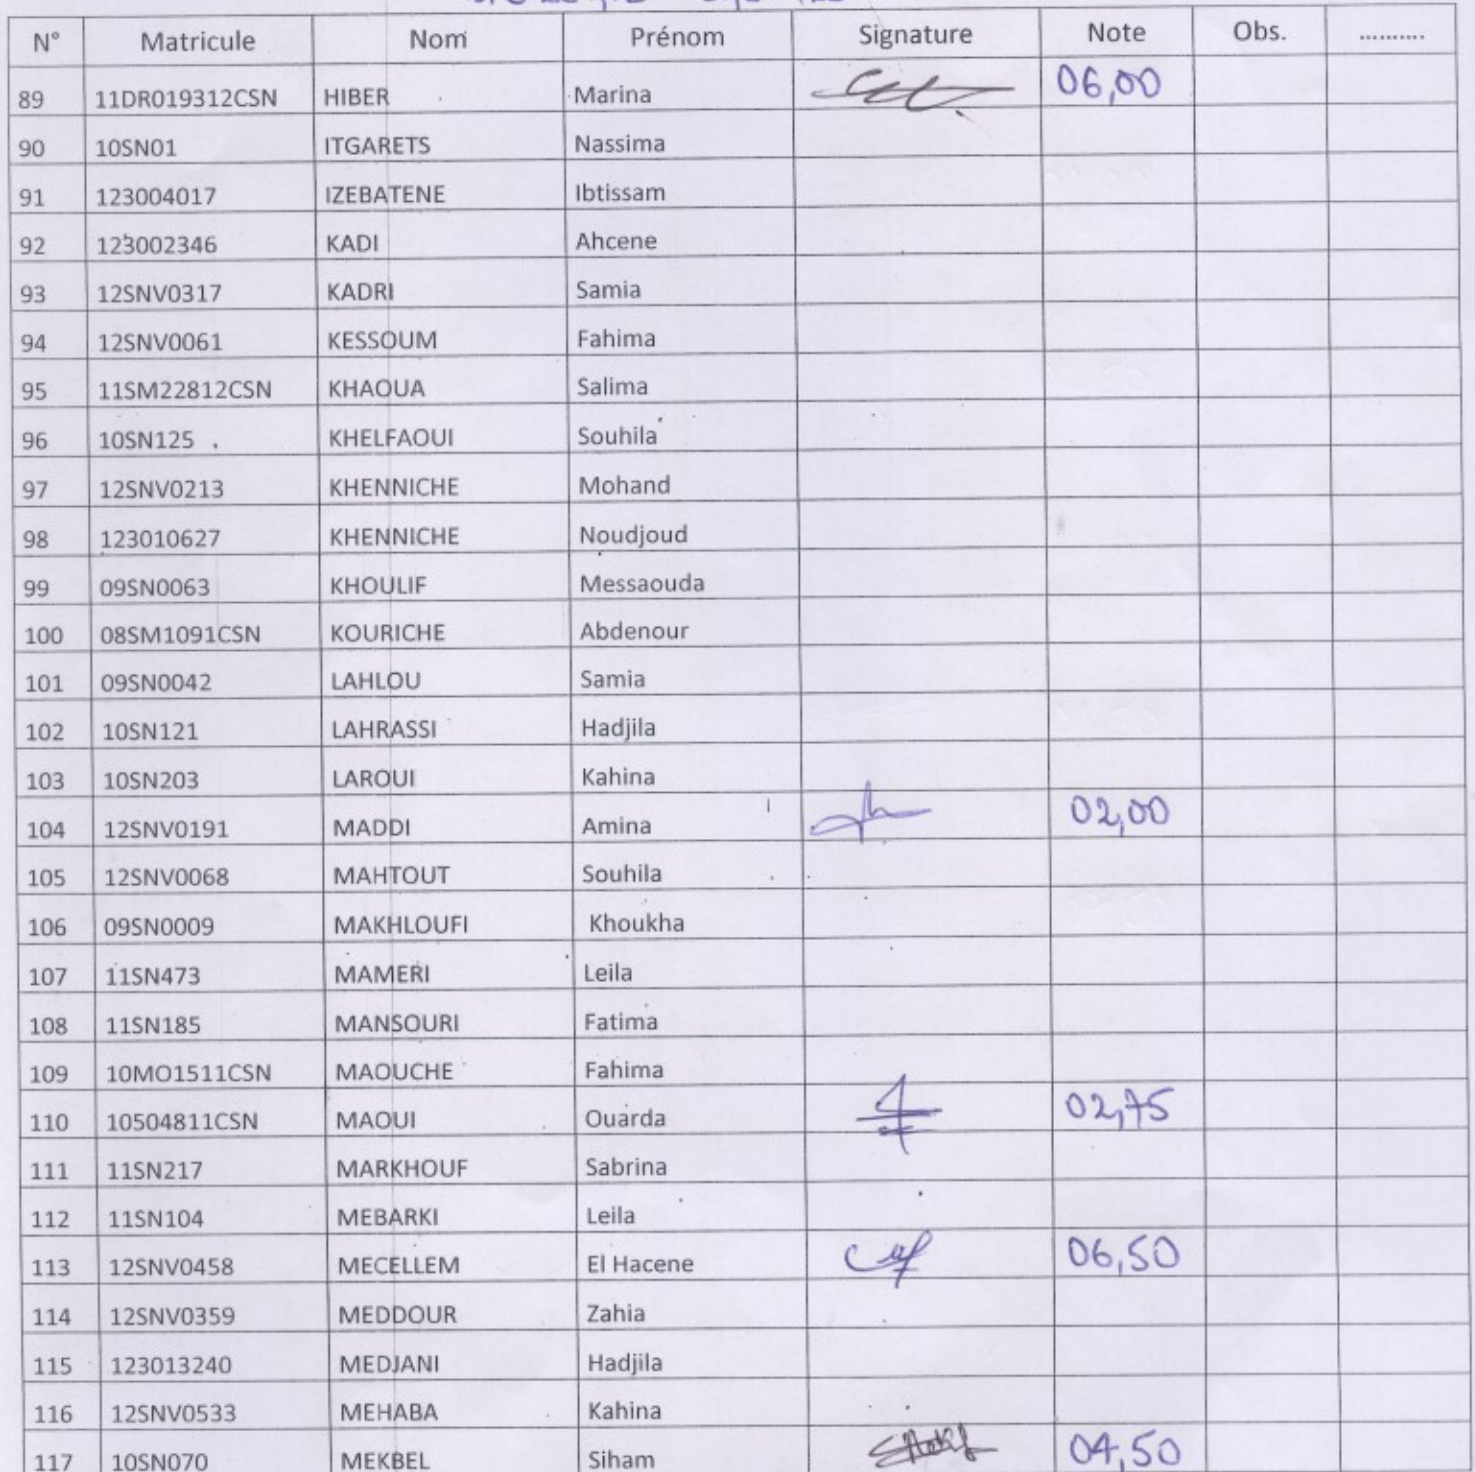 N° Matricule Nom Prénom Signature Note Obs. ..........
89 11DR019312CSN HIBER Marina 06,00
90 10SN01 ITGARETS Nassima
91 123004017 IZEBATENE Ibtissam
92 123002346 KADI Ahcene
93 12SNV0317 KADRI Samia
94 12SNV0061 KESSOUM Fahima
95 11SM22812CSN KHAOUA Salima
96 10SN125 KHELFAOUI Souhila
97 12SNV0213 KHENNICHE Mohand
98 123010627 KHENNICHE Noudjoud
99 09SN0063 KHOULIF Messaouda
100 08SM1091CSN KOURICHE Abdenour
101 09SN0042 LAHLOU Samia
102 10SN121 LAHRASSI Hadjila
103 10SN203 LAROUI Kahina
104 12SNV0191 MADDI Amina 02,00
105 12SNV0068 MAHTOUT Souhila
106 09SN0009 MAKHLOUFI Khoukha
107 11SN473 MAMERI Leila
108 11SN185 MANSOURI Fatima
109 10MO1511CSN MAOUCHE Fahima
110 10504811CSN MAOUI Ouarda 02,75
111 11SN217 MARKHOUF Sabrina
112 11SN104 MEBARKI Leila
113 12SNV0458 MECELLEM El Hacene 06,50
114 12SNV0359 MEDDOUR Zahia
115 123013240 MEDJANI Hadjila
116 12SNV0533 MEHABA Kahina
117 10SN070 MEKBEL Siham 04,50